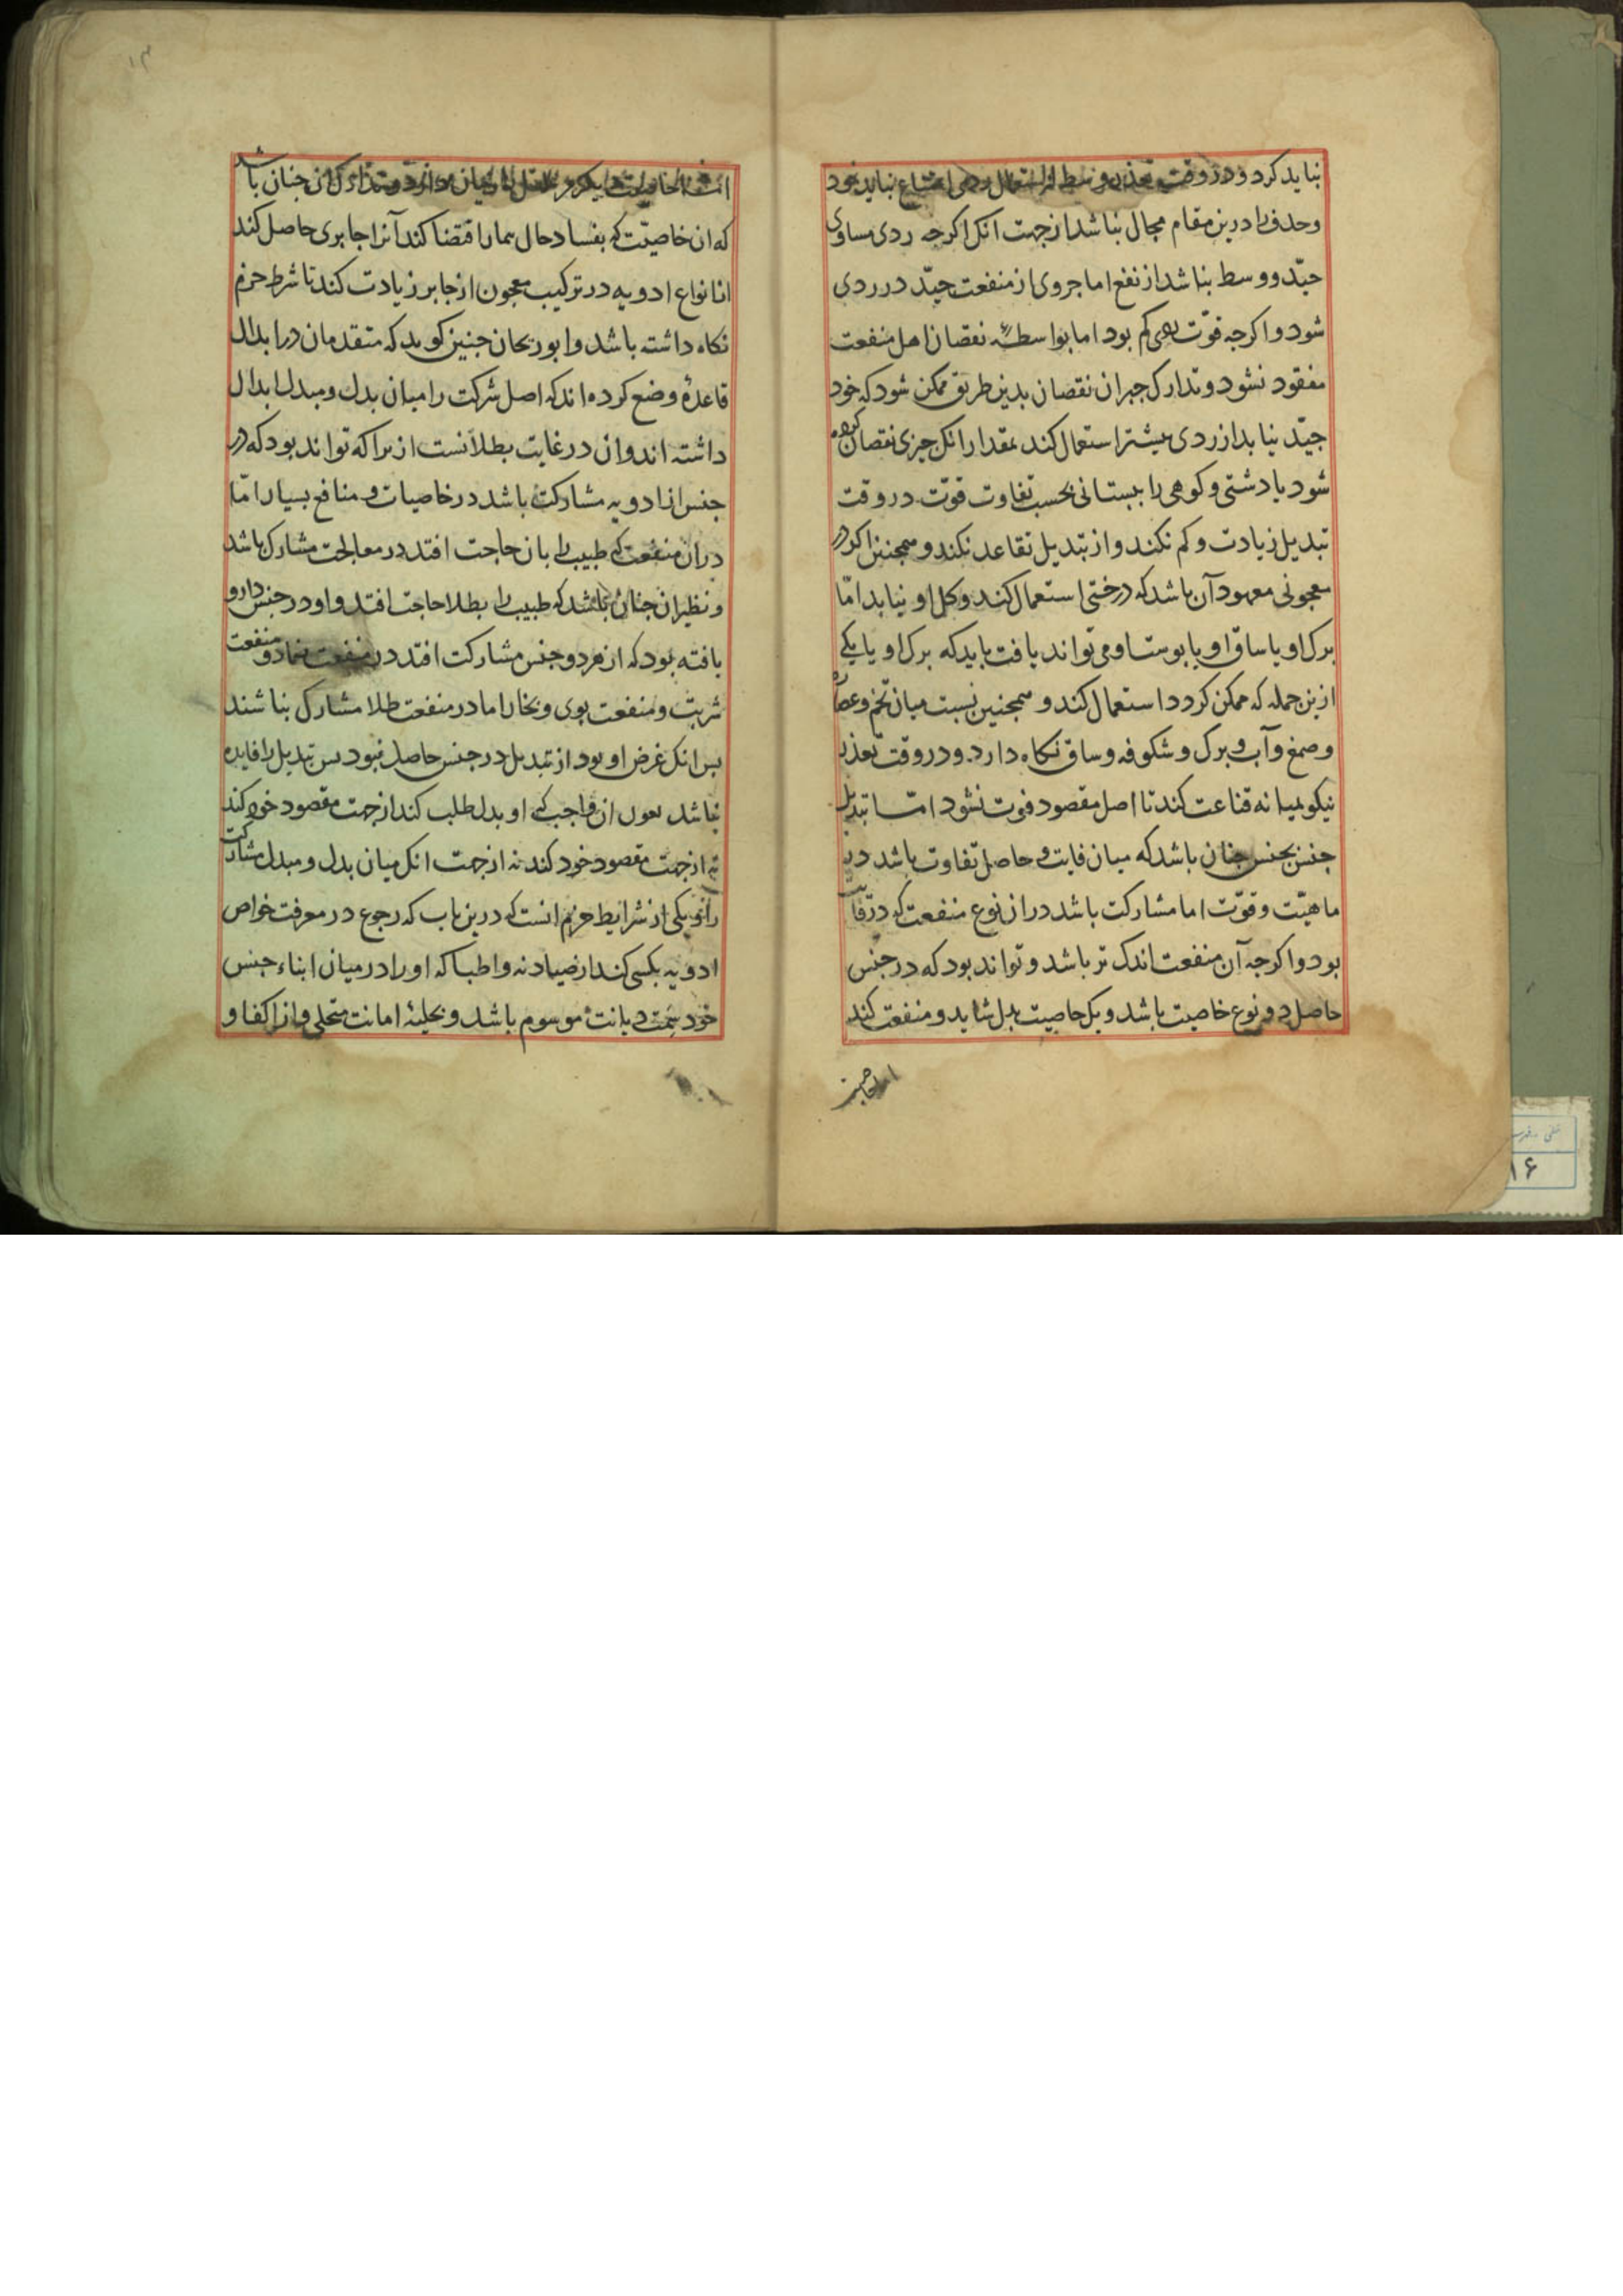 نباید کرد و در وقت تعذر وسط از استعمال ردی امتناع نباید نمود
و حذف را درین مقام مجال نباشد از جهت انک اکرجه ردی مساوی
جیّد و وسط نباشد از نفع اما جزوی از منفعت جیّد در ردی
شود و اکرجه قوّت کم بود اما بواسطهٔ نقصان اصل منفعت
مفقود نشود و تدارک جبران نقصان بدین طریق ممکن شود که خود
جیّد نیابد از ردی بیشتر استعمال کند بمقدار انک جیزی نقصان کرده
شود یا دشتی و کوهی را ببستانی بحسب تفاوت قوّت در وقت
تبدیل زیادت و کم نکند و از تبدیل تقاعد نکند و همجنین اکر در
معجونی معهود آن باشد که درختی استعمال کند و کل او نیابد امّا
برک او یا ساق او یا بوست او می تواند یافت باید که برک او یا یکی
ازین جمله که ممکن کردد استعمال کند و همجنین نسبت میان تخم و عصاره
و صمغ و آب و برک و شکوفه و ساق نکاه دارد و در وقت تعذر
نیکو بمیانه قناعت کند تا اصل مقصود فوت نشود امّا تبدیل
جنس بجنس جنان باشد که میان فایت و حاصل تفاوت باشد در
ماهیّت و قوّت اما مشارکت باشد در از نوع منفعت که در فایت
بود و اکرجه آن منفعت اندک تر باشد و تواند بود که در جنس
حاصل دو نوع خاصیت باشد و یک خاصیت بدل شاید و منفعت کند
اما خاصیت
اما خاصیت دیکر مر زیان دارد و تدارک آن جنان باشد
که ان خاصیّت که بفساد حال بیمار اقتضا کند آنرا جابری حاصل کند
تا انواع ادویه در ترکیب معجون از جابر زیادت کند تا شرط حزم
نکاه داشته باشد و ابو ریحان جنین کوید که متقدمان در ابدال
قاعدهٔ وضع کرده اند که اصل شرکت را میان بدل و مبدل ابدال
داشته اند و ان در غایت بطلانست از برا که تواند بود که در
جنس از ادویه مشارکت باشد در خاصیات و منافع بسیار امّا
در ان منفعت که طبیب را بان حاجت افتد در معالجت مشارک باشد
و نظیر ان جنان باشد که طبیب را بطلا حاجت افتد و او در جنس دارو
یافته بود که از هر دو جنس مشارکت افتد در منفعت ضماد و منفعت
شربت و منفعت بوی و بخار اما در منفعت طلا مشارک نباشند
بس انک غرض او بود از تبدیل در جنس حاصل نبود بس تبدیل را فایده
نباشد جون ان واجب که او بدل طلب کند از جهت مقصود خود کند
نه از جهت مقصود خود کند نه از جهت انک میان بدل و مبدل مشارکت
را و یکی از شرایط حزم انست که درین باب که رجوع در معرفت خواص
ادویه بکسی کند از صیادنه و اطبا که او را در میان ابناء جنس
خود سمت دیانت موسوم باشد و بحلیهٔ امانت متحلی و از اکفا و